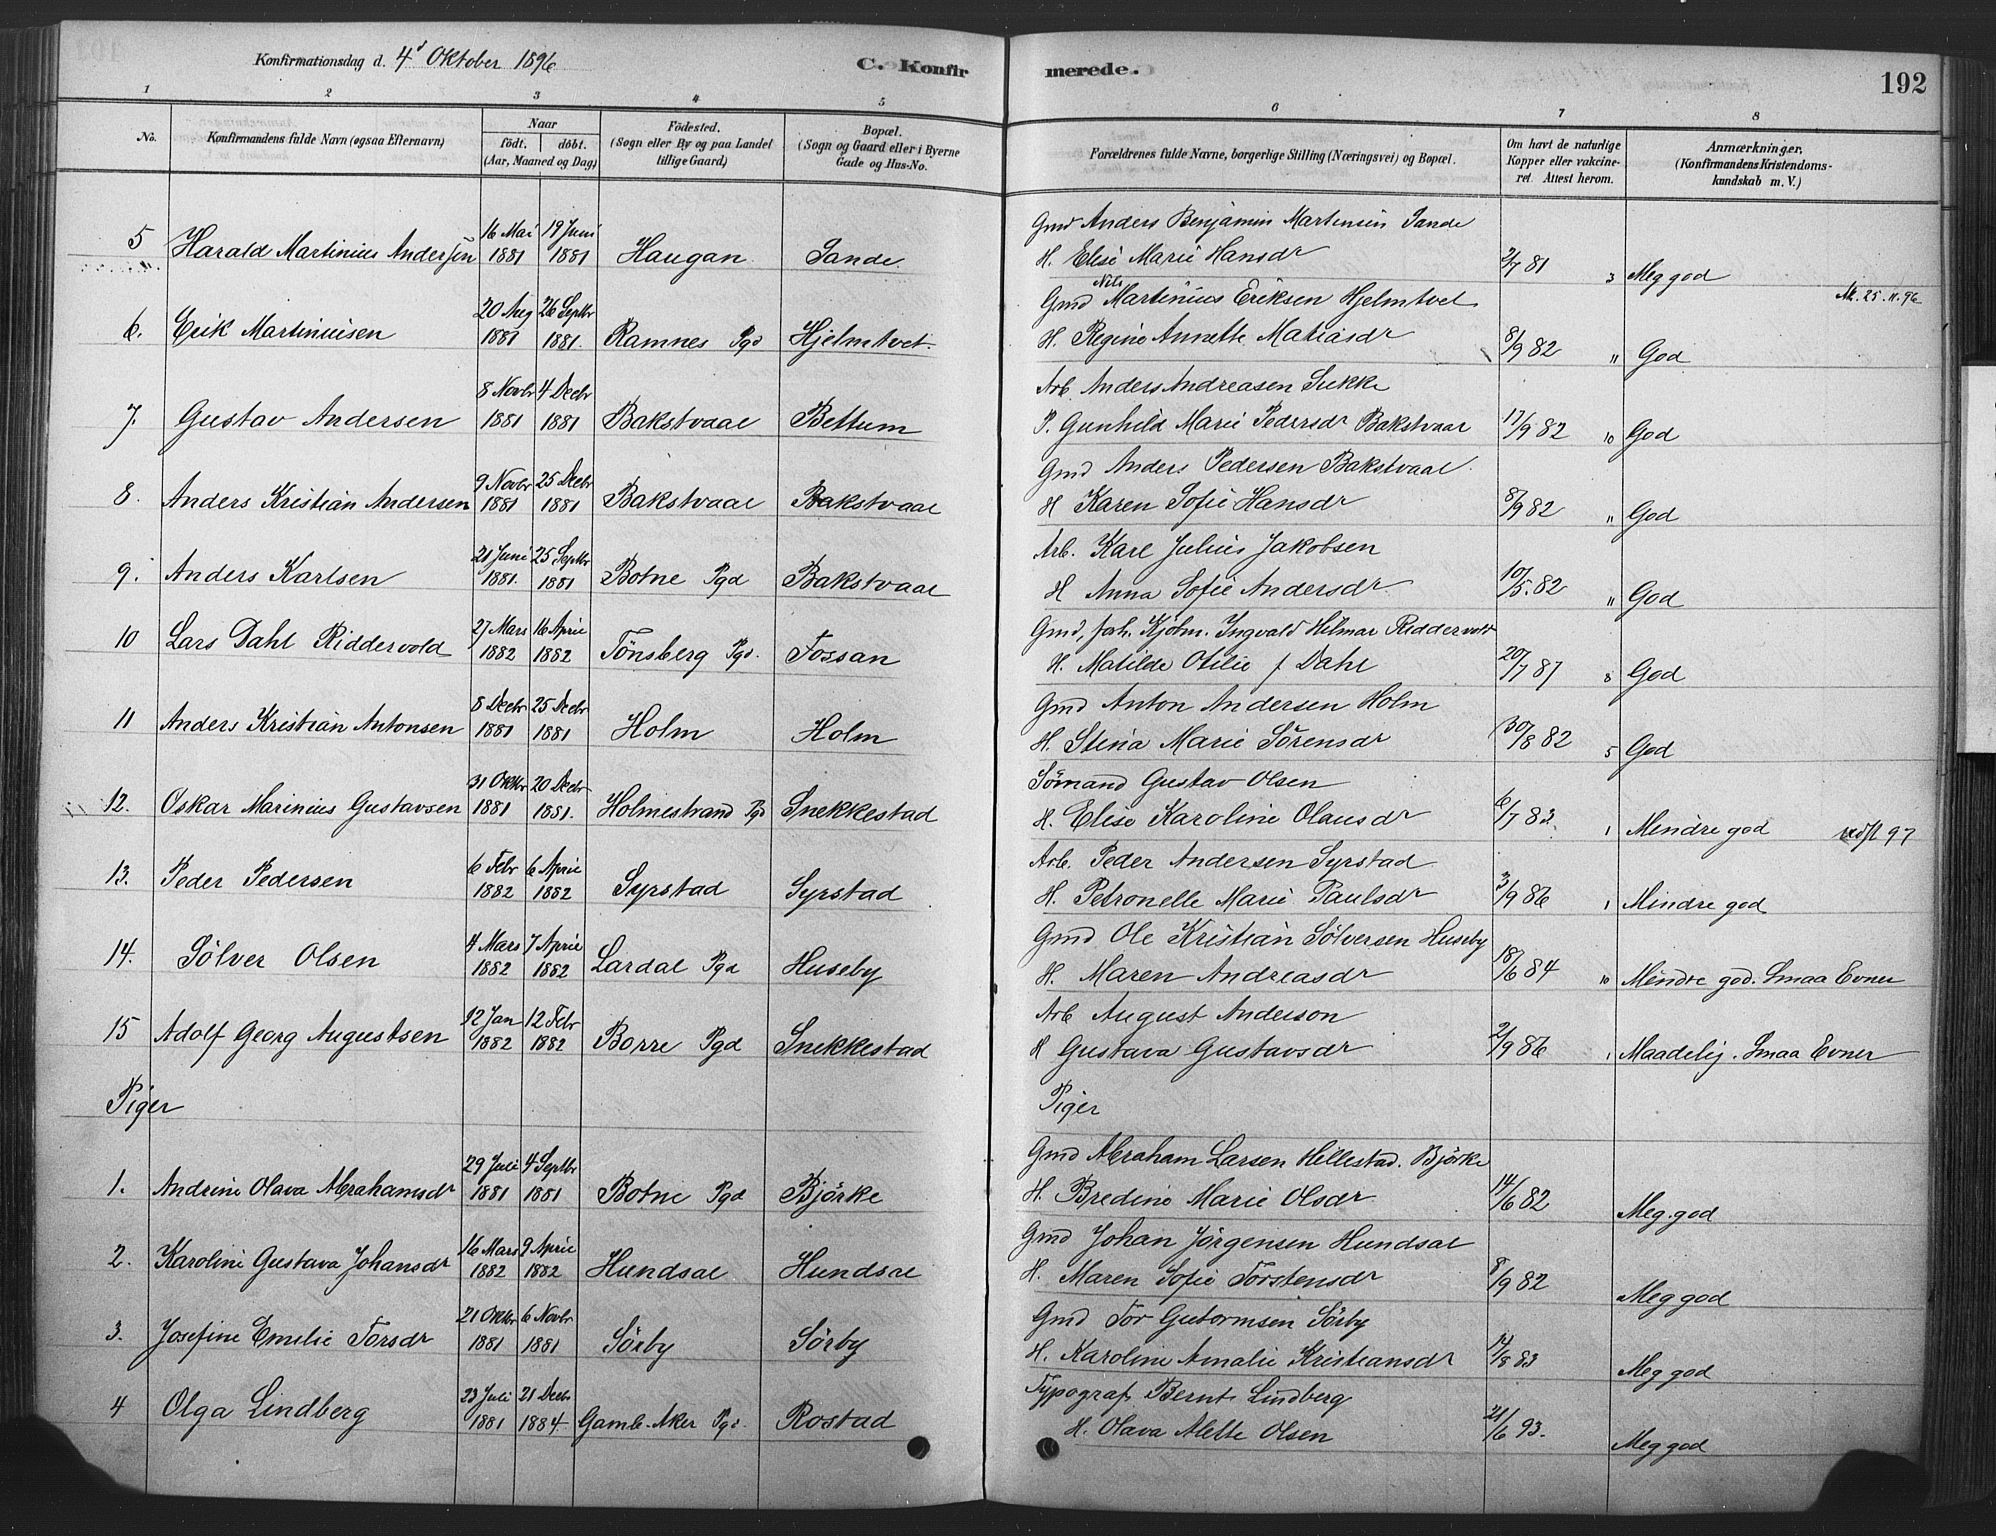 Konfirmationsdag d. 4d Oktober 1896
C. Konfirmerede.
192
1 2 3 4 5 6 7 8
No.
Konfirmandens fulde Navn (ogsaa Efternavn)
Naar
födt. döbt.
(Aar, Maaned og Dag)
Födested.
(Sogn eller By og paa Landet
tillige Gaard.)
Bopæl.
(Sogn og Gaard eller i Byerne
Gade og Hus-No.
Forældrenes fulde Navne, borgerlige Stilling (Næringsvei) og Bopæl.
Om havt de naturlige
Kopper eller vakcine-
ret. Attest herom.
Anmærkninger,
(Konfirmandens Kristendoms-
kundskab m. V.)
16 Mai 19 Juni Gmd Anders Benjamin Martensen Sande
5 Harald Martinius Andersen 1881 1881 Haugan Sande H. Elise Marie Hansdr 2/7 81 3 Meg god
20 Aug 26 Septbr Gmd Nils Martinius Eriksen Hjelmtvet At. 25.11.96
6. Erik Martiniusen 1881 1881. Ramnes Pgd Hjelmtvet. H. Regine Annette Matiasdr 8/9 82 " God
8 Novbr 4 Decbr Arb. Anders Andreasen Sukke
7. Gustav Andersen 1881 1881 Bakstvaal Bettum P. Gunhild Marie Pedersdr Bakstvaal 17/9 82 10 God
9 Novbr 25 Decbr Gmd Anders Pedersen Bakstvaal
8. Anders Kristian Andersen 1881 1881 Bakstvaal Bakstvaal H Karen Sofie Hansdr 8/9 82 " God
21 Juni 25 Septbr Arb. Karl Julius Jakobsen
9. Anders Karlsen 1881. 1881 Botne Pgd Bakstvaal H Anna Sofie Andersdr 10/5. 82 " God
27 Mars 16 April Gmd, fah. Kjøbm. Ingvald Hilmar Riddervold
10 Lars Dahl Riddervold 1882 1882 Tönsberg Pgd. Fossan H. Matilde Otilie f Dahl 20/7 87 8 God
8 Decbr 25 Decbr Gmd Anton Andersen Holm
11 Anders Kristian Antonsen 1881 1881 Holm Holm H. Stina Marie Sörensdr 30/8 82 5 God
31 Oktbr 20 Decbr Sömand Gustav Olsen
12. Oskar Marinius Gustavsen 1881 1881. Holmestrand Pgd Snekkestad H. Elise Karoline Olausdr 6/7 82. 1 Mindre god
6 Febr 6 April Arb. Peder Andersen Syrstad
13. Peder Pedersen 1882 1882 Syrstad Syrstad H. Petronelle Marie Paulsdr 3/9 86 1 Mindre god
4 Mars 7 April Gmd Ole Kristian Sölversen Huseby
14. Sölver Olsen 1882 1882 Lardal Pgd Huseby H. Maren Andreasdr 18/6 84 10 Mindre god. Smaa Evner
12 Jan 12 Febr Arb August Anderson
15 Adolf Georg Augustsen 1882 1882 Borre Pgd Snekkestad H Gustava Gustavsdr 21/9 86 1 Maadelig. Smaa Evner
Piger Piger
29 Juli 4 Septbr Gmd Abraham Larsen Hillestad. Björke
1. Andrine Olava Abrahamsdr 1881 1881 Botne Pgd Björke H. Bredine Marie Olsdr 14/6 82 Meg. god
16 Mars 9 April Gmd Johan Jörgensen Hundsal
2. Karoline Gustava Johansdr 1882 1882 Hundsal Hundsal H. Maren Sofie Torstensdr 8/9 82 Meg god
21 Oktbr 6 Novbr Gmd Tor Gutormsen Sörby
3. Josefine Emilie Torsdr 1881 1881 Sörby Sörby H. Karoline Amalie Kristiansdr 14/8 83 Meg god
23 Juli 21 Decbr Typograf Bernt Lindberg
4 Olga Lindberg 1881 1884. Gamb. Aker Pgd. Rostad H. Olava Alette Olsen 21/6 93. Meg god